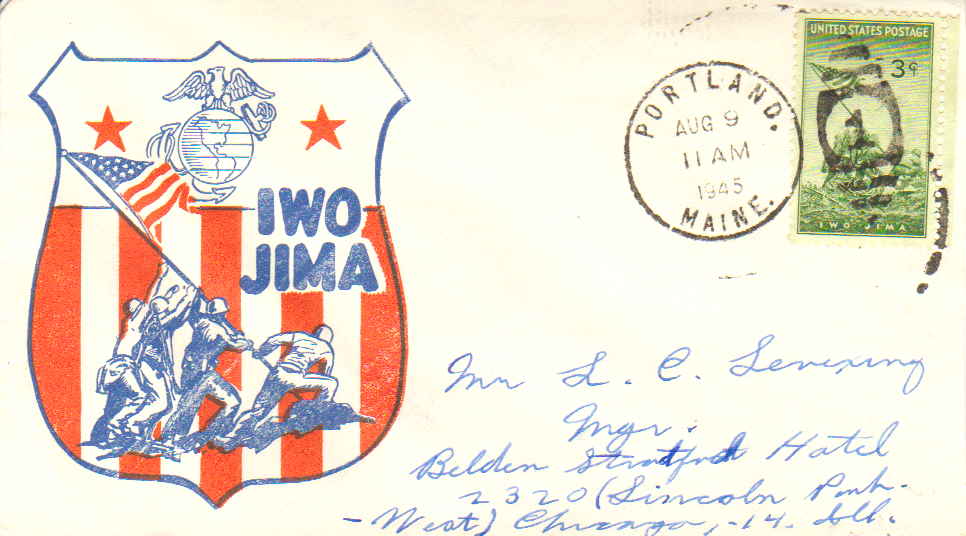 IWO
JIMA
PORTLAND.
AUG 9
11 AM
1945
MAINE.
UNITED STATES POSTAGE
3¢
IWO JIMA
Mr L. C. Levering
Mgr.
Belden Stratford Hotel
2320 (Lincoln Park-
-West) Chicago,-14. Ill.